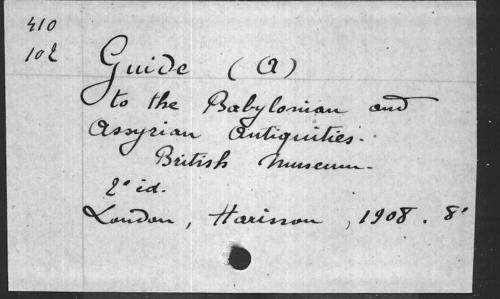 410
102
Guide (A)
to the Babylonian and
Assyrian Antiquities.
British Museum.
2° id.
London, Harisson, 1908. 8°